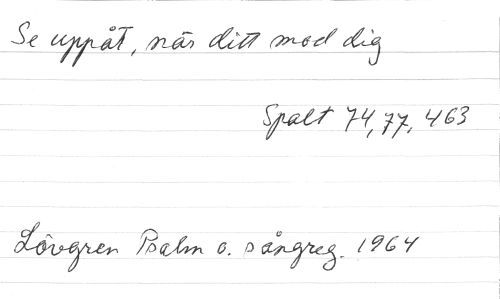 Se uppåt, när ditt mod dig
Spalt 74, 77, 463
Lövgren Psalm o. sångreg. 1964